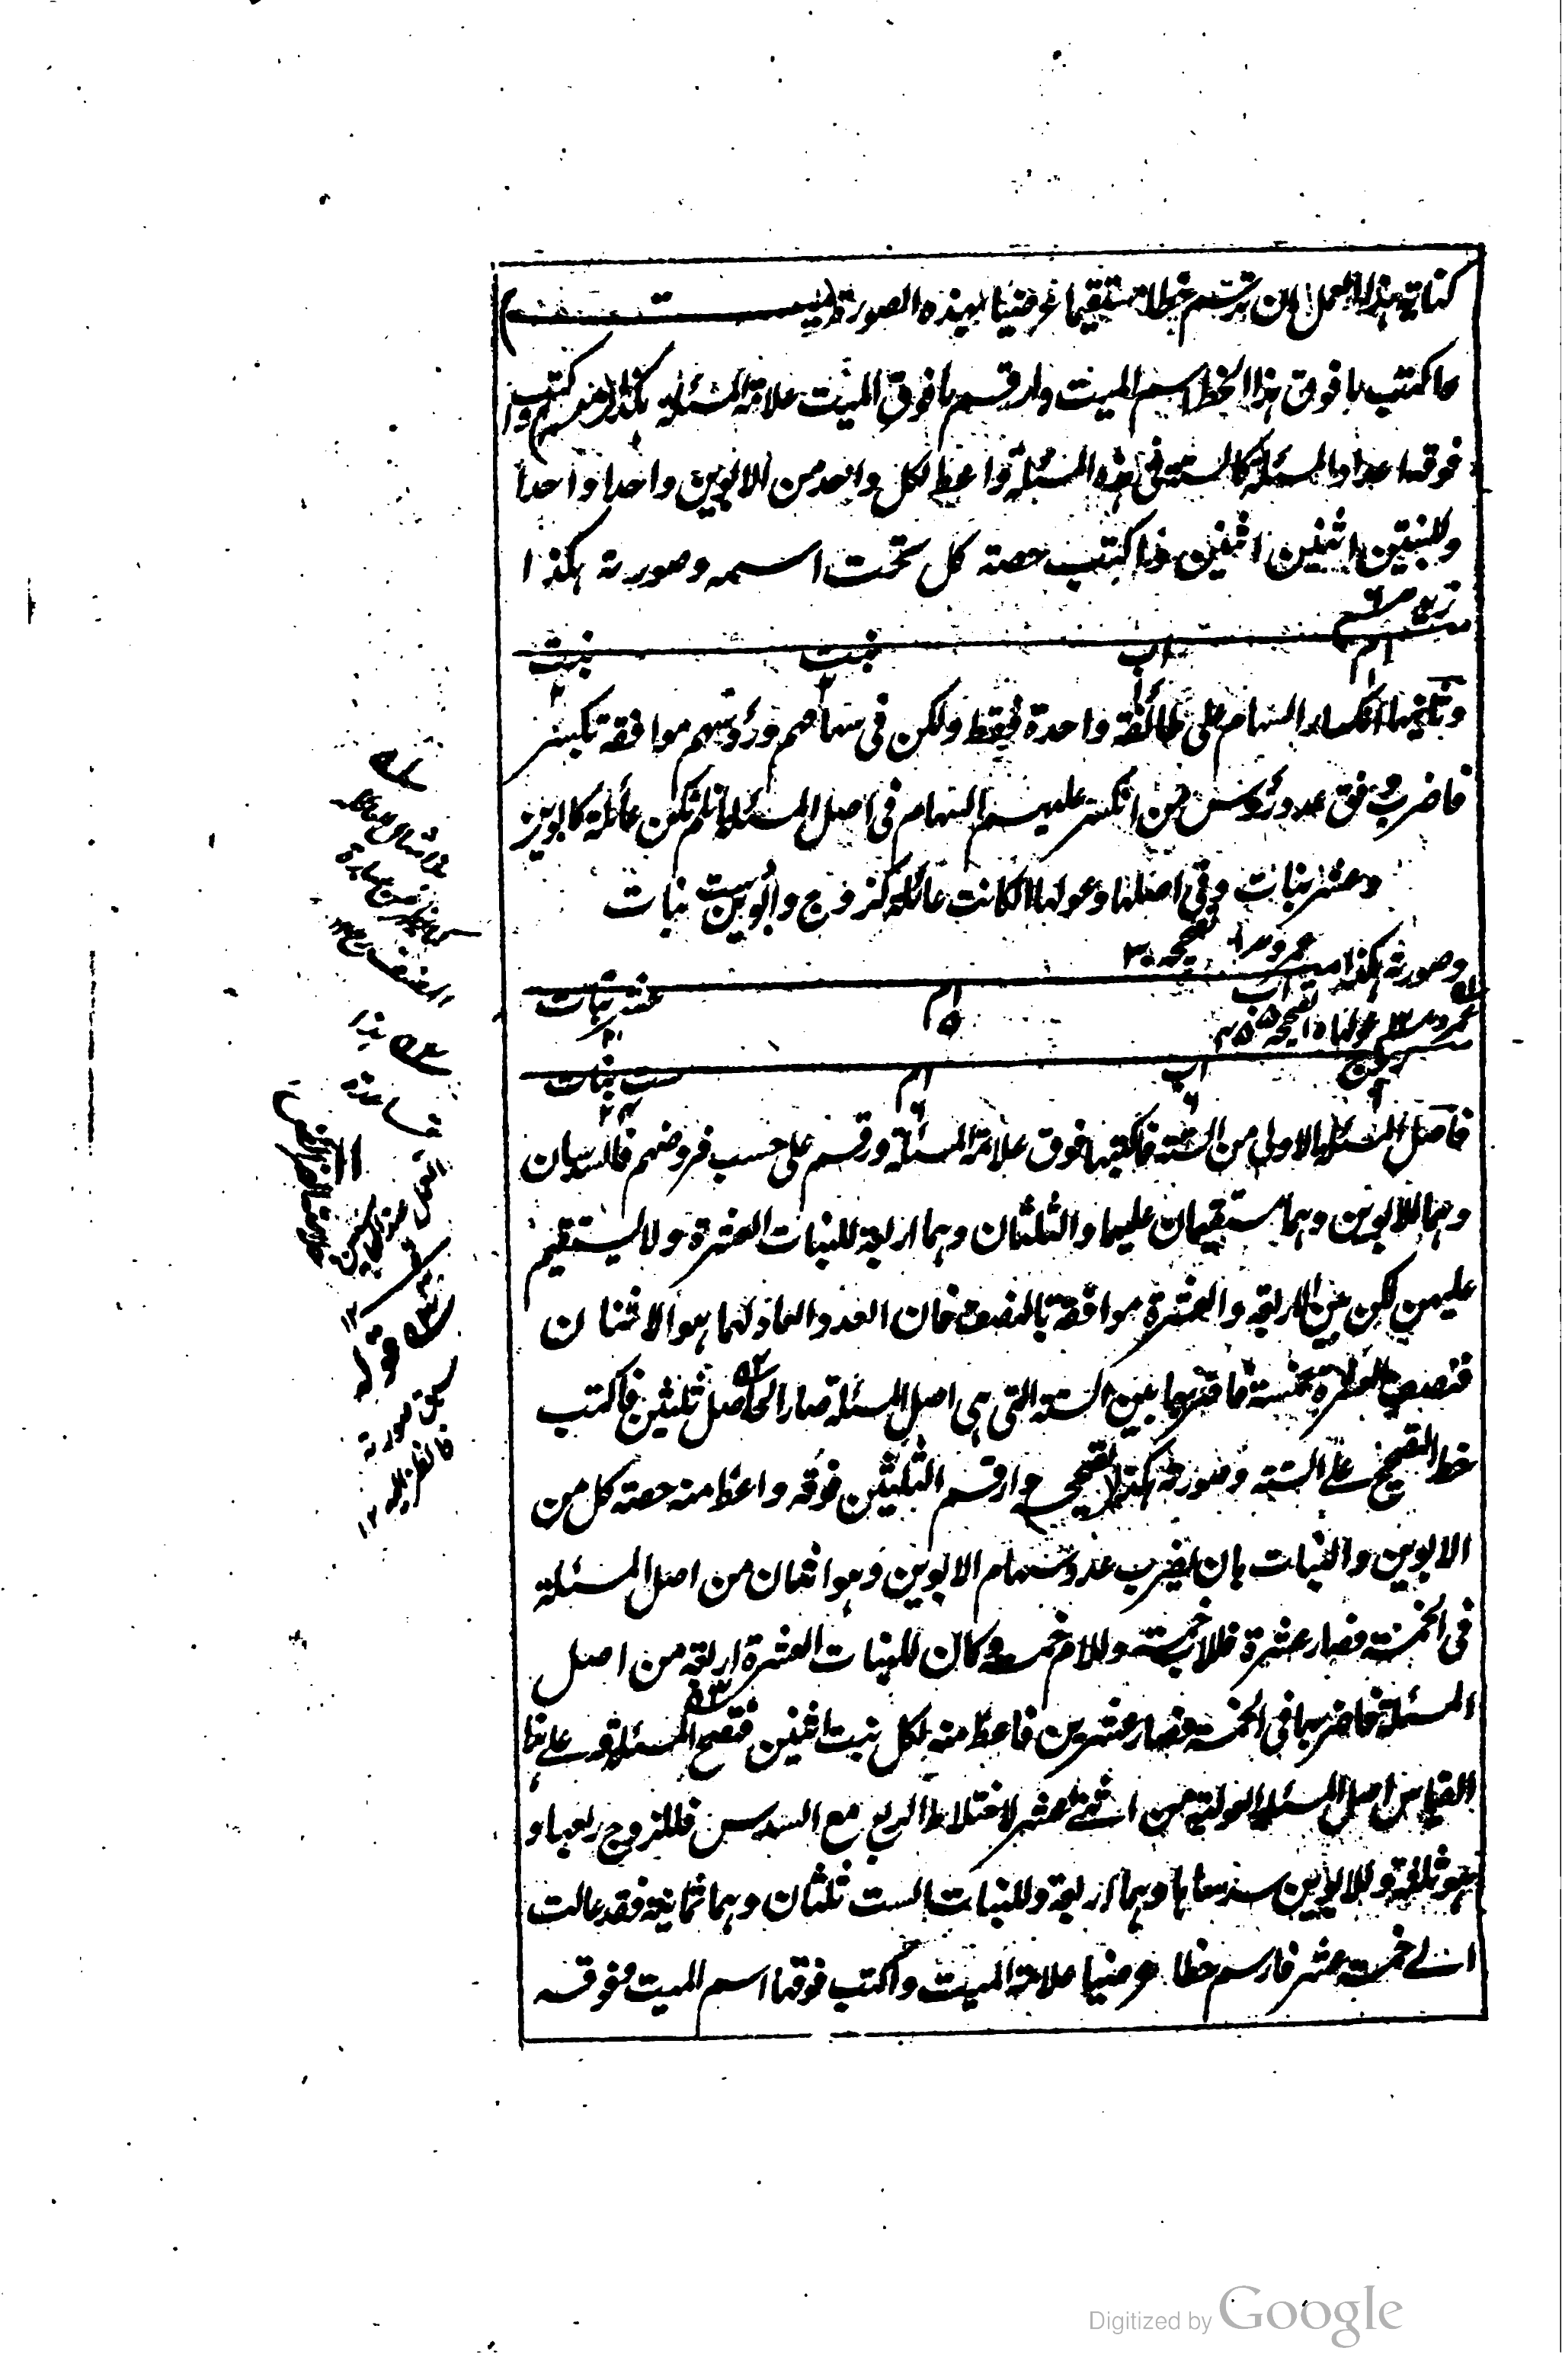 كتابة هذا العمل ان ترتسم خطا مستقيما عرضيا بهذه الصورة (ميــــــت)
فاكتب ما فوق هذا الخط اسم الميت وارقم ما فوق الميت علامة المسئلة هكذا واكتب
فوقه اعداد المسئلة كالستة فى هذه المسئلة واعط لكل واحد من الابوين واحدا واحدا
وللبنتين اثنين اثنين فاكتب حصة كل تحت اسمه وصورته هكذا
زيد مسـ ٦
ام اب بنت بنت
١ ١ ٢ ٢
وثانيها انكسار السهام على طائفة واحدة فقط ولكن فى سهامهم ورؤسهم موافقة تكسر
فاضرب وفق عدد رؤس من انكسر عليهم السهام فى اصل المسئلة ان لم تكن عائلة كابوين
وعشر بنات وفى اصلها وعولها ان كانت عائلة كزوج وابوين وست بنات
وصورته هكذا عمرو مسـ ٦ تصحيحه ٣٠
اب ام عشر بنات
٥ ٢٠
عولها ١٥ تصحيحه ٤٥
زوج اب ام ست بنات
٩ ٦ ٦ ٢٤
فاصل المسئلة الاولى من الستة فاكتبها فوق علامة المسئلة ورقسم على حسب فروضهم فالسدسان
وهما للابوين وهما مستقيمان عليهما والثلثان وهما اربعة للبنات العشرة ولا يستقيم
عليهن لكن بين الاربعة والعشرة موافقة بالنصف فان العدد العاد لهما هو الاثنان
فنصف العشرة خمسة فاضربها بين الستة التى هى اصل المسئلة صار الحاصل ثلثين فاكتب
خط التصحيح على الستة وصورته هكذا تصحيح وارقسم الثلثين فوقه واعط منه حصة كل من
الابوين والبنات بان يضرب عدد سهام الابوين وهو اثنان من اصل المسئلة
فى الخمسة فصار عشرة فللاب خمسة وللام خمسة وكان للبنات العشرة اربعة من اصل
المسئلة فاضربها فى الخمسة فصار عشرين فاعط منه لكل بنت اثنين فتصح المسئلة وعلى هذا
القياس اصل المسئلة العولية من اثنى عشر لاختلاط الربع مع السدس فللزوج ربعها و
هو ثلثة وللابوين سدساها وهما اربعة وللبنات الست ثلثان وهما ثمانية فقد عالت
الى خمسة عشر فارسم خطا عرضيا علامة الميت واكتب فوقها اسم الميت وفوقه
هذا
قاعدة
قوله
صورته
فانظر اليه ١٢
Digitized by Google